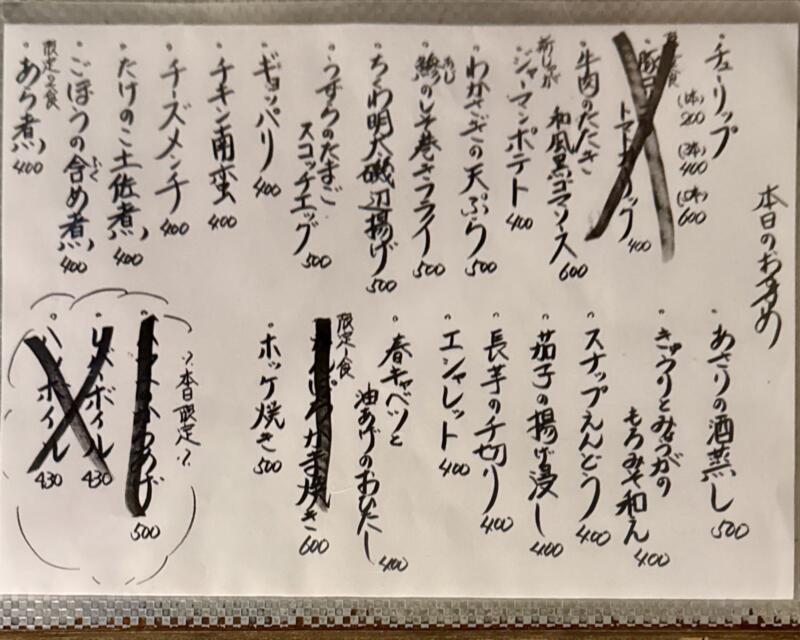 本日のおすすめ
・チューリップ
(1本)200 (2本)400 (3本)600
トマトガーリック 400
・牛肉のたたき
和風黒ゴマソース 600
新じゃが
・ジャーマンポテト 400
・わかさぎの天ぷら 500
・鯵のしそ巻きフライ 500
あじ
・ちくわ明太磯辺揚げ 500
・うずらのたまご
スコッチエッグ 500
・ギョッパリ 400
・チキン南蛮 400
・チーズメンチ 400
・たけのこ土佐煮 400
・ごぼうの含め煮 400
ふく
限定2食
・あら煮 400
・あさりの酒蒸し 500
・きゅうりとみょうがの
もろみそ和え 400
・スナップえんどう 400
・茄子の揚げ浸し 400
・長芋の千切り 400
・エシャレット 400
・春キャベツと
油あげのおひたし 400
限定1食
かま焼き 600
・ホッケ焼き 500
本日限定
500
ボイル 430
ボイル 430